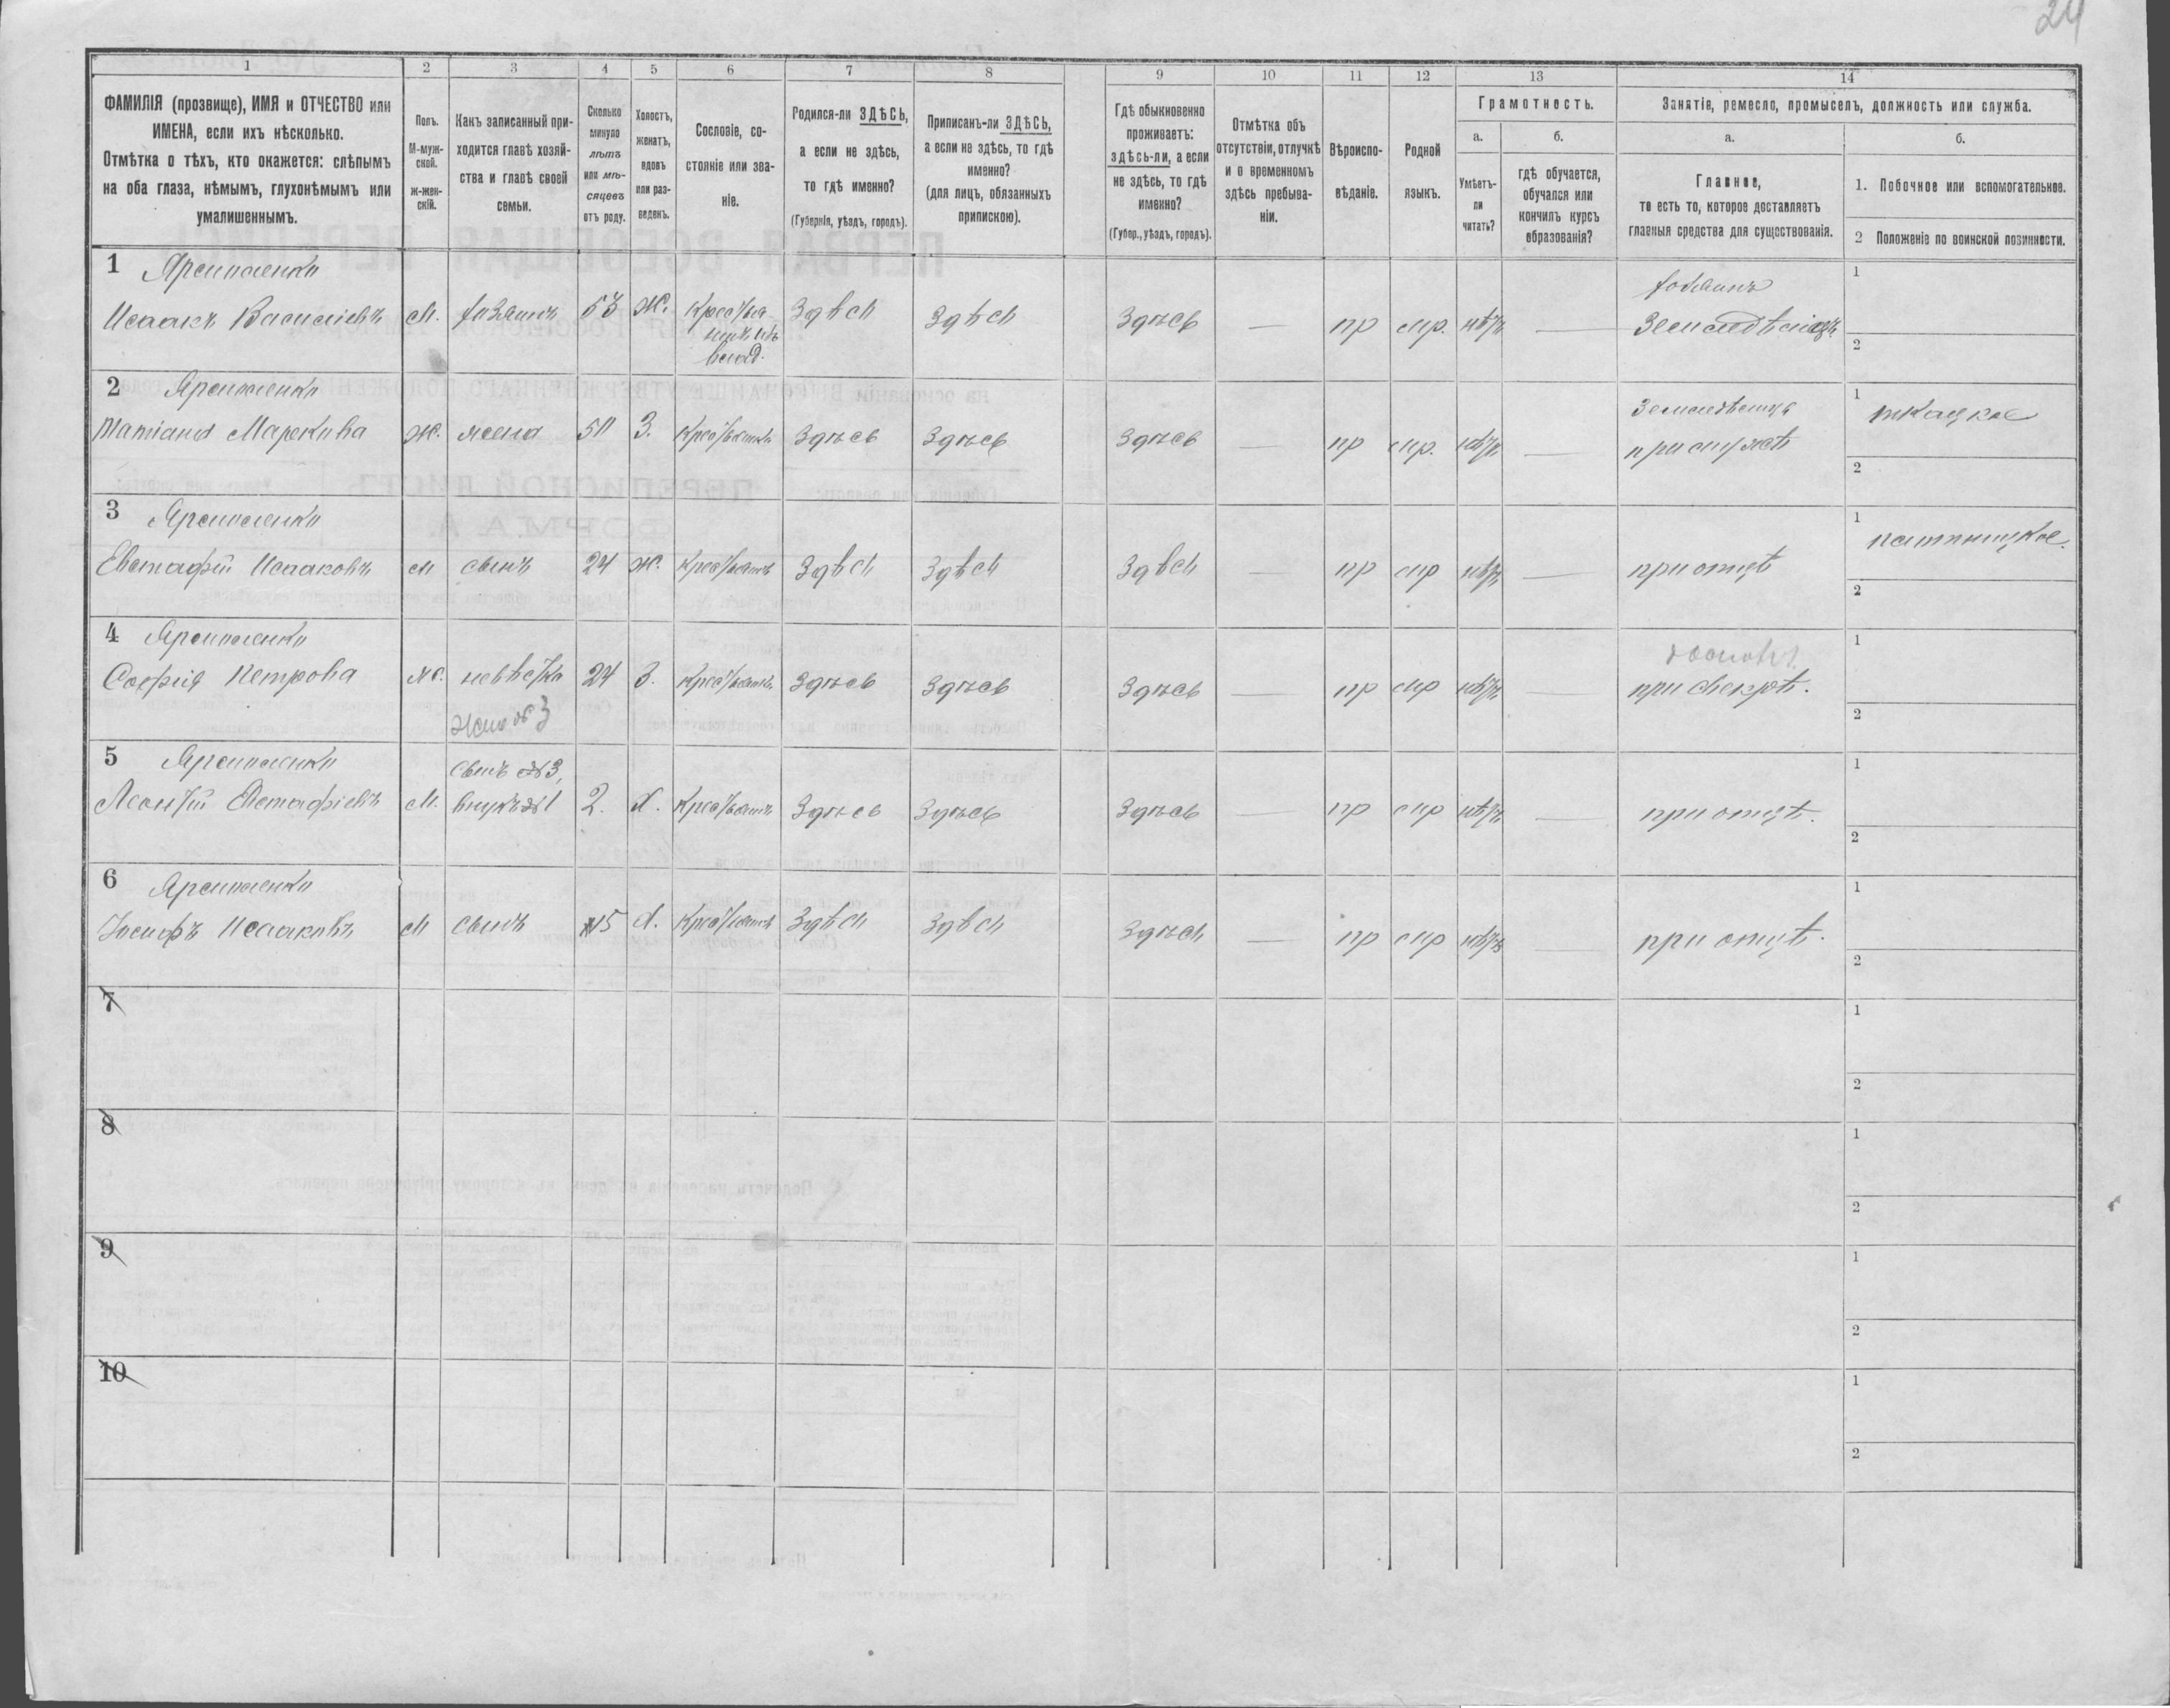 24
1 2 3 4 5 6 7 8 9 10 11 12 13 14
ФАМИЛІЯ (прозвище), ИМЯ и ОТЧЕСТВО или
ИМЕНА, если ихъ нѣсколько.
Отмѣтка о тѣхъ, кто окажется: слѣпымъ
на оба глаза, нѣмымъ, глухонѣмымъ или
умалишеннымъ.
Полъ.
М-муж-
ской.
Ж-жен-
скій.
Какъ записанный при-
ходится главѣ хозяй-
ства и главѣ своей
семьи.
Сколько
минуло
лѣтъ
или мѣ-
сяцевъ
отъ роду.
Холостъ,
женатъ,
вдовъ
или раз-
веденъ.
Сословіе, со-
стояніе или зва-
ніе.
Родился-ли ЗДѢСЬ,
а если не здѣсь,
то гдѣ именно?
(Губернія, уѣздъ, городъ).
Приписанъ-ли ЗДѢСЬ,
а если не здѣсь, то гдѣ
именно?
(для лицъ, обязанныхъ
припискою).
Гдѣ обыкновенно
проживаетъ:
здѣсь-ли, а если
не здѣсь, то гдѣ
именно?
(Губер., уѣздъ, городъ).
Отмѣтка объ
отсутствіи, отлучкѣ
и о временномъ
здѣсь пребыва-
ніи.
Вѣроиспо-
вѣданіе.
Родной
языкъ.
Грамотность.
а. б.
Умѣетъ-
ли
читать?
гдѣ обучается,
обучался или
кончилъ курсъ
образованія?
Занятіе, ремесло, промыселъ, должность или служба.
а. б.
Главное,
то есть то, которое доставляетъ
главныя средства для существованія.
1. Побочное или вспомогательное.
2 Положеніе по воинской повинности.
1
Исаакъ Василіевъ М. хозяинъ 53 Ж. Крестья-
нинъ изъ
влад.
Здѣсь Здѣсь Здѣсь — пр мр. нѣтъ —
хозяинъ
Земледѣлецъ
1
2
2
Татіана Маркова Ж. жена 50 З. Крестьянка Здѣсь Здѣсь Здѣсь — пр мр. нѣтъ —
при мужѣ
1 ткацкое
2
3
Евстафій Исааковъ М сынъ 24 Ж. Крестьянинъ Здѣсь Здѣсь Здѣсь — пр мр нѣтъ — при отцѣ
1
2
4
Софія Петрова Ж. невѣстка 24 З. Крестьянка Здѣсь Здѣсь Здѣсь — пр мр нѣтъ — при свекрѣ.
жена № 3
1
2
5
сынъ №3,
Леонтій Евстафіевъ М. внукъ №1 2. Х. Крестьянинъ Здѣсь Здѣсь Здѣсь — пр мр нѣтъ — при отцѣ.
1
2
6
Іосифъ Исааковъ М сынъ 15 Х. Крестьянинъ Здѣсь Здѣсь Здѣсь — пр мр нѣтъ — при отцѣ.
1
2
7
1
2
8
1
2
9
1
2
10
1
2